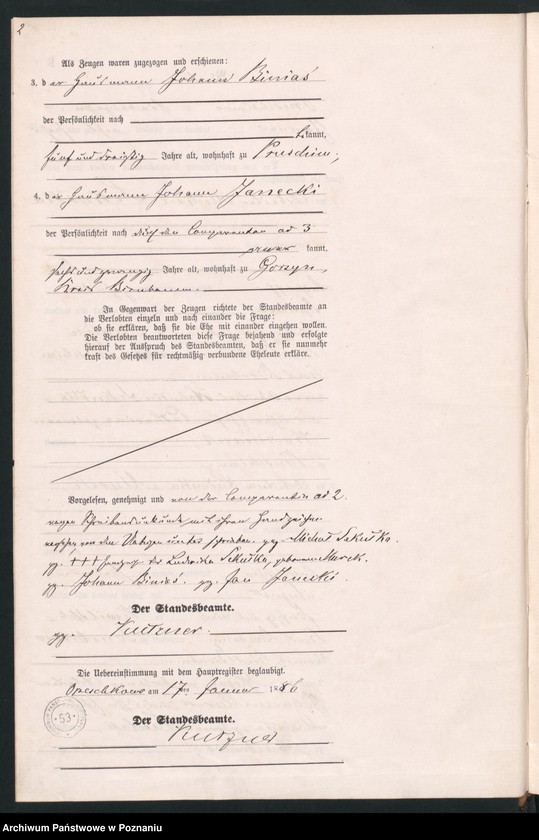 2
Als Zeugen waren zugezogen und erschienen:
3. der Hausmann Johann Binias
der Persönlichkeit nach
bekannt,
fünf und dreißig Jahre alt, wohnhaft zu Pruschim;
4. der Hausmann Johann Janecki
der Persönlichkeit nach durch den Comparenten ad 3
kannt,
sechs und zwanzig Jahre alt, wohnhaft zu Gorzyn,
Kreis Birnbaum.
In Gegenwart der Zeugen richtete der Standesbeamte an
die Verlobten einzeln und nach einander die Frage:
ob sie erklären, daß sie die Ehe mit einander eingehen wollen.
Die Verlobten beantworteten diese Frage bejahend und erfolgte
hierauf der Ausspruch des Standesbeamten, daß er sie nunmehr
kraft des Gesetzes für rechtmäßig verbundene Eheleute erkläre.
Vorgelesen, genehmigt und von der Comparentin ad 2.
wegen Schreibensunkunde mit ihrem Handzeichen
versehen von den Uebrigen unterschrieben. gez. Michael Sekuska.
gez. +++ Handz. der Ludwika Sekuska, geborenen Murck.
gez. Johann Binias. gez. Jan Janecki.
Der Standesbeamte.
gez. Kutzner.
Die Uebereinstimmung mit dem Hauptregister beglaubigt.
Orzeschkowo am 17ten Januar 1886
Der Standesbeamte.
Kutzner
53
Archiwum Państwowe w Poznaniu